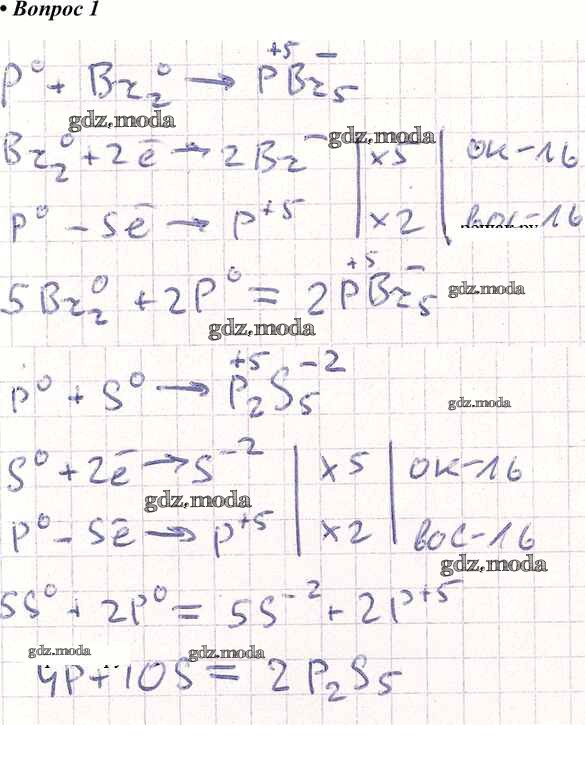 • Вопрос 1
P⁰ + Br₂⁰ → P⁺⁵Br₅⁻
gdz.moda
gdz.moda
Br₂⁰ + 2ē → 2Br⁻ | ×5 | ок-16
P⁰ - 5ē → P⁺⁵ | ×2 | вос-16
5Br₂⁰ + 2P⁰ = 2P⁺⁵Br₅⁻
gdz.moda
gdz.moda
P⁰ + S⁰ → P₂⁺⁵S₅⁻²
gdz.moda
S⁰ + 2ē → S⁻² | ×5 | ок-16
gdz.moda
P⁰ - 5ē → P⁺⁵ | ×2 | вос-16
gdz.moda
5S⁰ + 2P⁰ = 5S⁻² + 2P⁺⁵
gdz.moda
gdz.moda
4P + 10S = 2P₂S₅